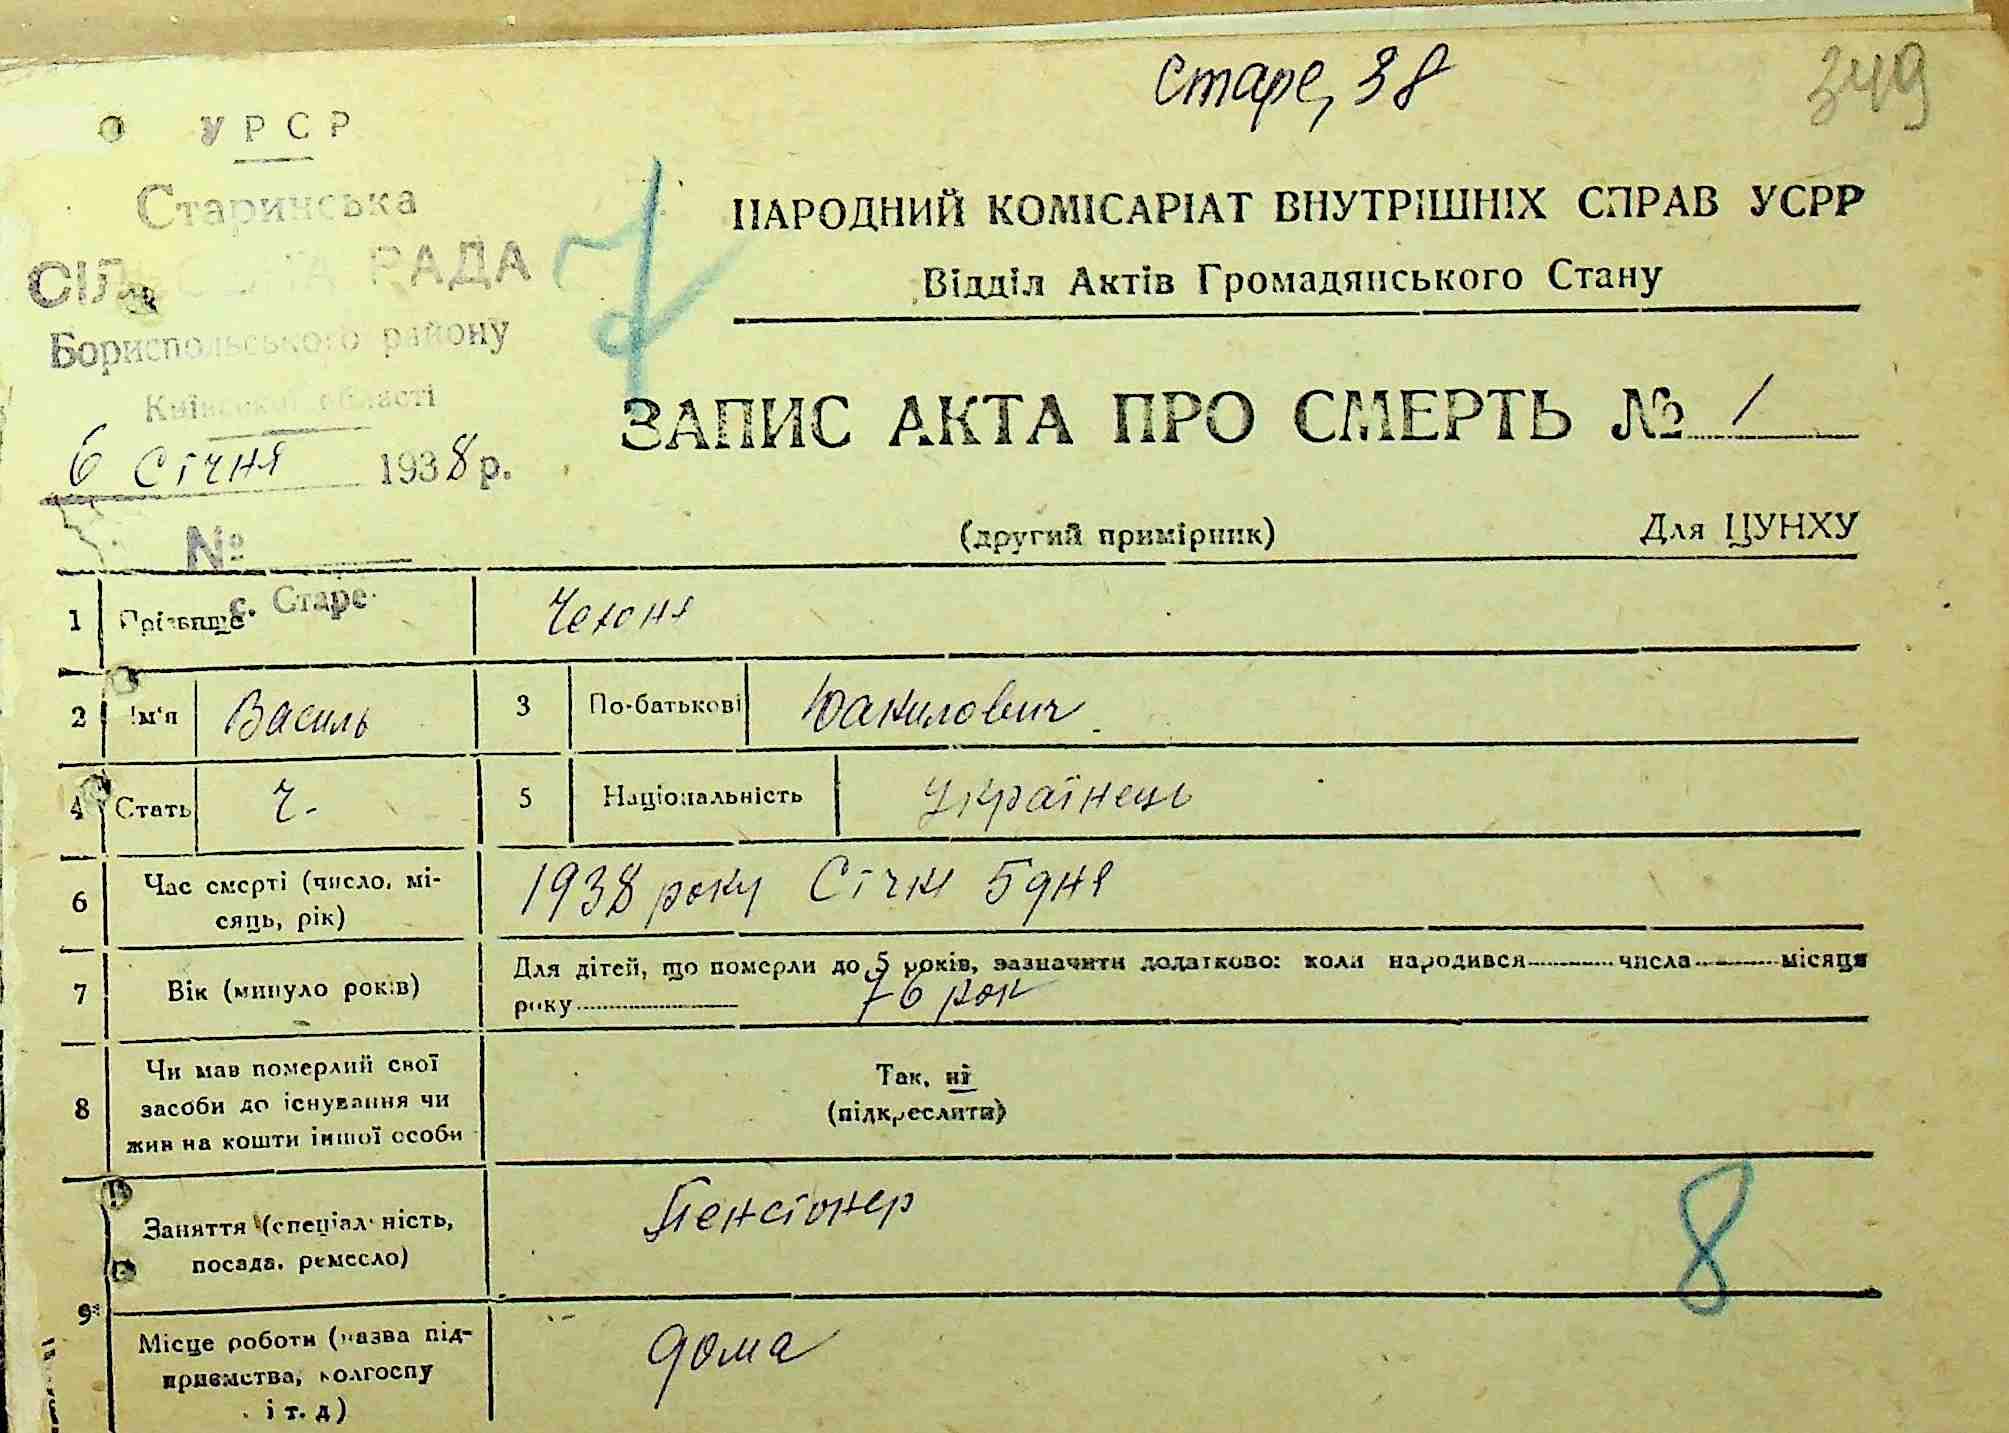 Старе, 38
349
УРСР
Старинська
СІЛЬСЬКА РАДА
Бориспольського району
Київської області
6 Січня 1938 р.
№
с. Старе
7
НАРОДНИЙ КОМІСАРІАТ ВНУТРІШНІХ СПРАВ УСРР
Відділ Актів Громадянського Стану
ЗАПИС АКТА ПРО СМЕРТЬ № 1
(другий примірник)
Для ЦУНХУ
1 Прізвище Чехоня
2 Ім'я Василь 3 По-батькові Данилович
4 Стать Ч. 5 Національність Українець
6 Час смерті (число, мі-
сяць, рік) 1938 року Січня 5 дня
7 Вік (минуло років) Для дітей, що померли до 5 років, зазначити додатково: коли народився числа місяця
року 76 рок
8 Чи мав померлий свої
засоби до існування чи
жив на кошти іншої особи
Так, ні
(підкреслити)
9 Заняття (спеціальність,
посада, ремесло) Пенсіонер
8
Місце роботи (назва під-
приємства, колгоспу
і т. д) дома